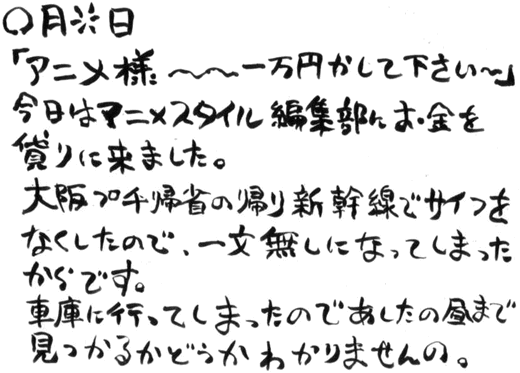 〇月※日
「アニメ様〜〜一万円かして下さい〜」
今日はアニメスタイル編集部にお金を
貸りに来ました。
大阪プチ帰省の帰り新幹線でサイフを
なくしたので、一文無しになってしまった
からです。
車庫に行ってしまったのであしたの昼まで
見つかるかどうかわかりませんの。